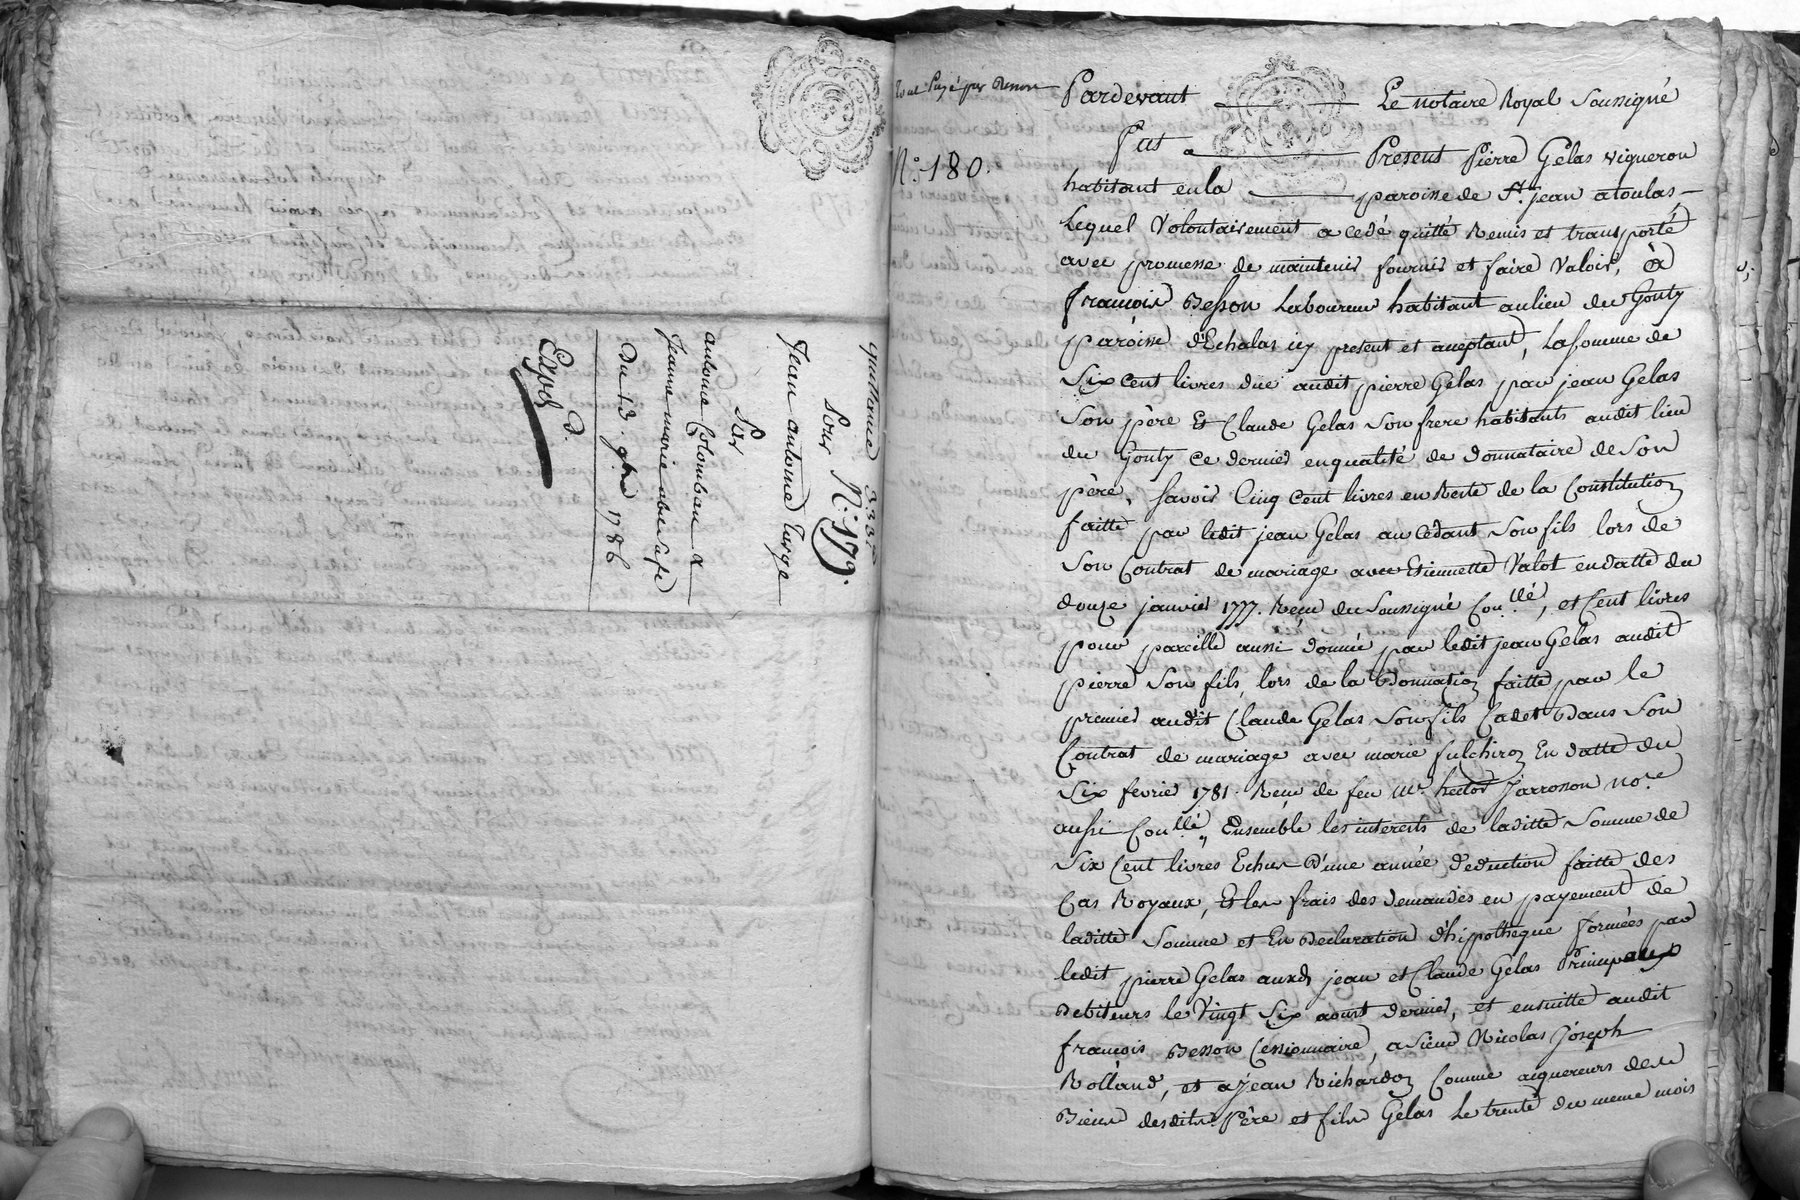 quittance 333#
Sous N.º 179.
Jean antoine Targe
Par
antoine Colomban &
Jeanne marie
Du 13. 9bre 1786
Expd.
D.
par Besson
N.º 180.
Pardevant Le notaire Royal Soussigné
Fut Présent Pierre Gelas vigneron
habitant en la paroisse de St. jean atoulas,
Lequel Volontairement a cedé quitté Remis et transporté
avec promesse de maintenir fournir et faire Valoir, à
françois Besson Laboureur habitant au lieu du Gouty
paroisse d'Echalas icy present et acceptant, La somme de
Six cent livres due audit pierre Gelas par jean Gelas
Son père Et Claude Gelas Son frere habitants audit lieu
du Gouty ce dernier en qualité de Donnataire de Son
père, Savoir Cinq Cent livres en Reste de la Constitution
faitte par ledit jean Gelas au Cedant Son fils lors de
Son Contrat de mariage avec Etiennette Valot en datte du
douze janvier 1777. Reçu du Soussigné Con.llé, et Cent livres
pour pareille aussi donnée par ledit jean Gelas audit
pierre Son fils, lors de la Donnation faitte par le
premier audit Claude Gelas Son fils Cadet Dans Son
Contrat de mariage avec marie fulchiron En datte du
Six fevrier 1781. Reçu de feu Me. hector Jarrosson no.re
aussi Con.llé, Ensemble les interests de laditte Somme de
Six Cent livres Echus D'une année deduction faitte des
Cas Royaux, Et les frais des demandes en payement de
laditte Somme et En Declaration d'hipotheque formées par
ledit pierre Gelas auxd. jean et Claude Gelas Principaux
Debiteurs le Vingt Six aoust dernier, et ensuitte audit
françois Besson Cessionnaire, a Sieur Nicolas Joseph
Rolland, et a Jean Richardon Comme acquereurs des
Biens desdits Père et fils Gelas Le trente du meme mois